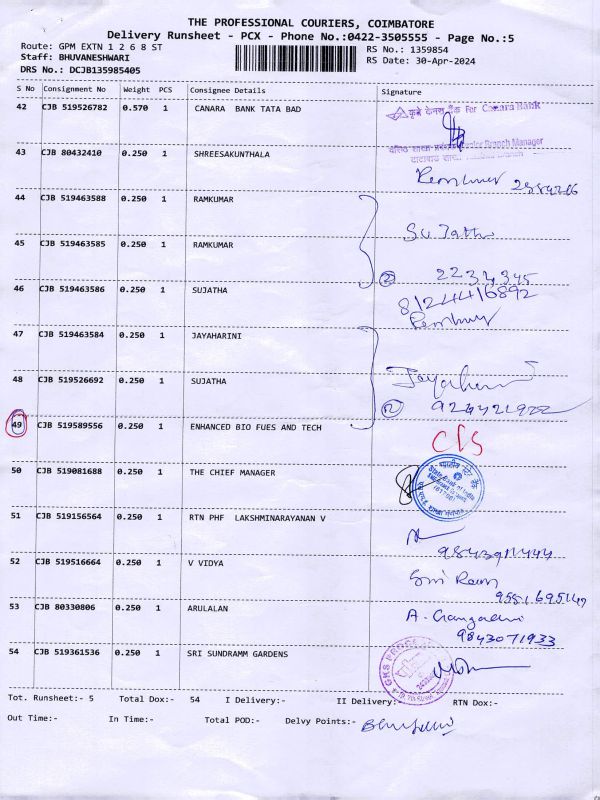 THE PROFESSIONAL COURIERS, COIMBATORE
Delivery Runsheet - PCX - Phone No.:0422-3505555 - Page No.:5
Route: GPM EXTN 1 2 6 8 ST RS No.: 1359854
Staff: BHUVANESHWARI RS Date: 30-Apr-2024
DRS No.: DCJB135985405
S No Consignment No Weight PCS Consignee Details Signature
42 CJB 519526782 0.570 1 CANARA BANK TATA BAD
For Canara Bank
Branch Manager
43 CJB 80432410 0.250 1 SHREESAKUNTHALA
44 CJB 519463588 0.250 1 RAMKUMAR
45 CJB 519463585 0.250 1 RAMKUMAR
Sujatha
2 2234345
46 CJB 519463586 0.250 1 SUJATHA
8124416892
47 CJB 519463584 0.250 1 JAYAHARINI
48 CJB 519526692 0.250 1 SUJATHA
49 CJB 519589556 0.250 1 ENHANCED BIO FUES AND TECH
C/S
50 CJB 519081688 0.250 1 THE CHIEF MANAGER
State Bank of India
51 CJB 519156564 0.250 1 RTN PHF LAKSHMINARAYANAN V
52 CJB 519516664 0.250 1 V VIDYA
Sri Ram
53 CJB 80330806 0.250 1 ARULALAN
9843071933
54 CJB 519361536 0.250 1 SRI SUNDRAMM GARDENS
Tot. Runsheet:- 5 Total Dox:- 54 I Delivery:- II Delivery:- RTN Dox:-
Out Time:- In Time:- Total POD:- Delvy Points:-